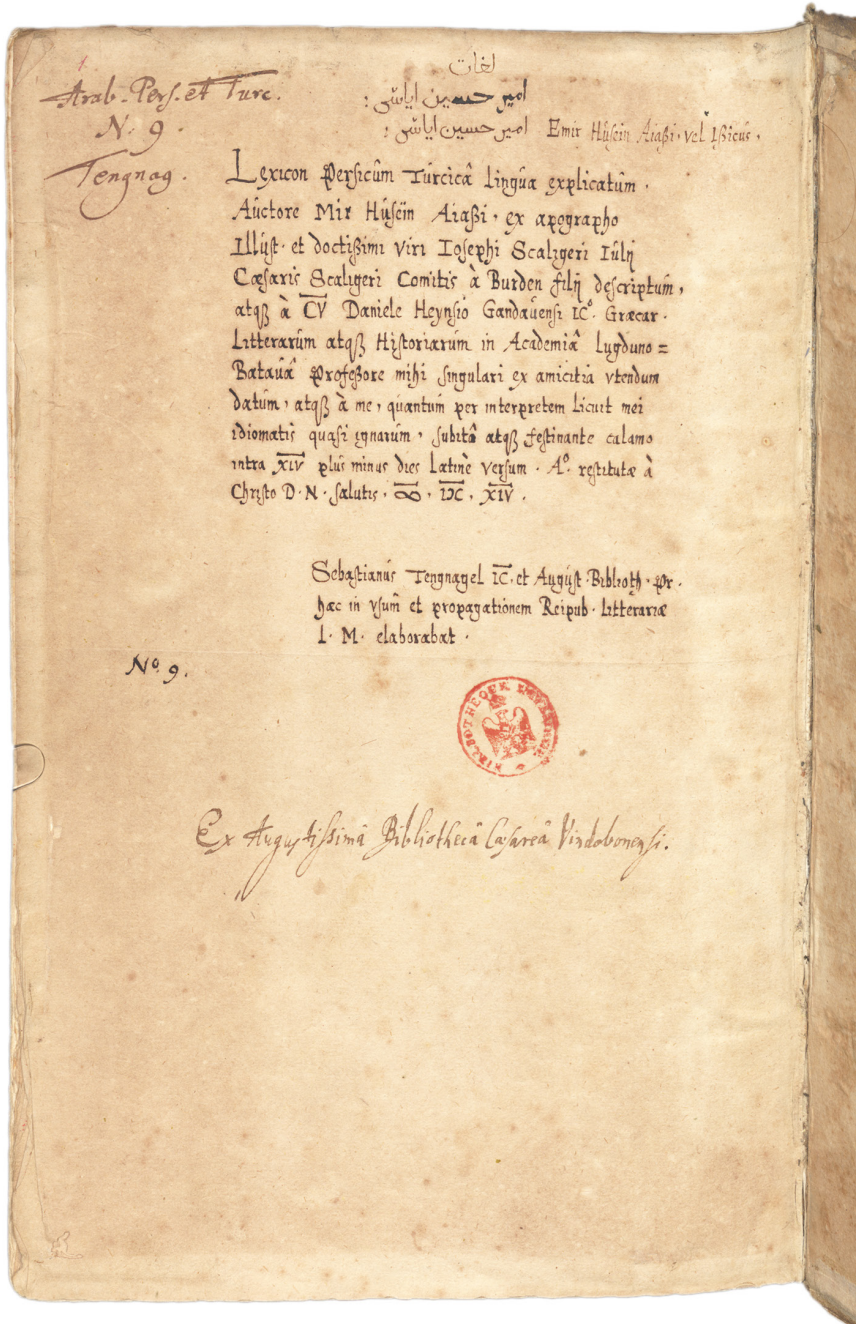 1.
Arab. Pers. et Turc.
N. 9.
Tengnag.
لغات
امير حسين اياشى :
امير حسين اياشى : Emir Húsein Aiaßi, vel Ißicús.
Lexicon Persicûm Túrcicâ lingúa explicatúm.
Aúctore Mir Húseïn Aiaßi, ex apographo
Illúst. et doctißimi viri Iosephi Scaligeri Iúlij
Cæsaris Scaligeri Comitis à Burden filij descriptúm,
atqȝ à CV Daniele Heynsio Gandaúensi IC°. Græcar.
Litterarúm atqȝ Historiarúm in Academiâ lugduno=
Bataúâ Profeßore mihi singulari ex amicitia vtendum
datúm, atqȝ à me, qúantúm per interpretem licuit mei
idiomatis quasi ignarúm, súbitô atqȝ festinante calamo
intra XIV plús minus dies Latinè versum. A°. restitutæ à
Christo D. N. salutis, ꝏ, IƆC, XIV.
Sebastianús Tengnagel IC. et Aúgúst. Biblioth. pr.
hæc in vsum̂ et propagationem Reipub. Litterariæ
L. M. elaborabat.
N° 9.
BIBLIOTHEQUE IMPERIALE
Ex Augustissimâ Bibliothecâ Cæsareâ Vindobonensi.